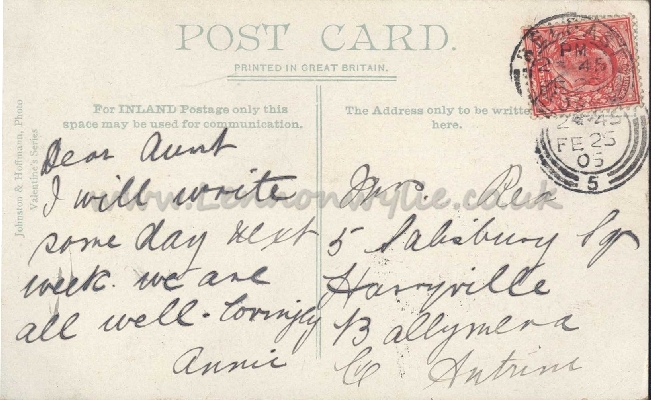 POST CARD.
PRINTED IN GREAT BRITAIN.
For INLAND Postage only this
space may be used for communication.
The Address only to be written
here.
Johnston & Hoffmann, Photo
Valentine's Series
Dear Aunt
I will write
some day next
week. we are
all well. Lovingly
Annie
Mrs.
5 Salisbury Sq
Harryville
Ballymena
Co Antrim
www.Lennonwylie.co.uk
BELFAST
PM
2 45
FE 25
05
5